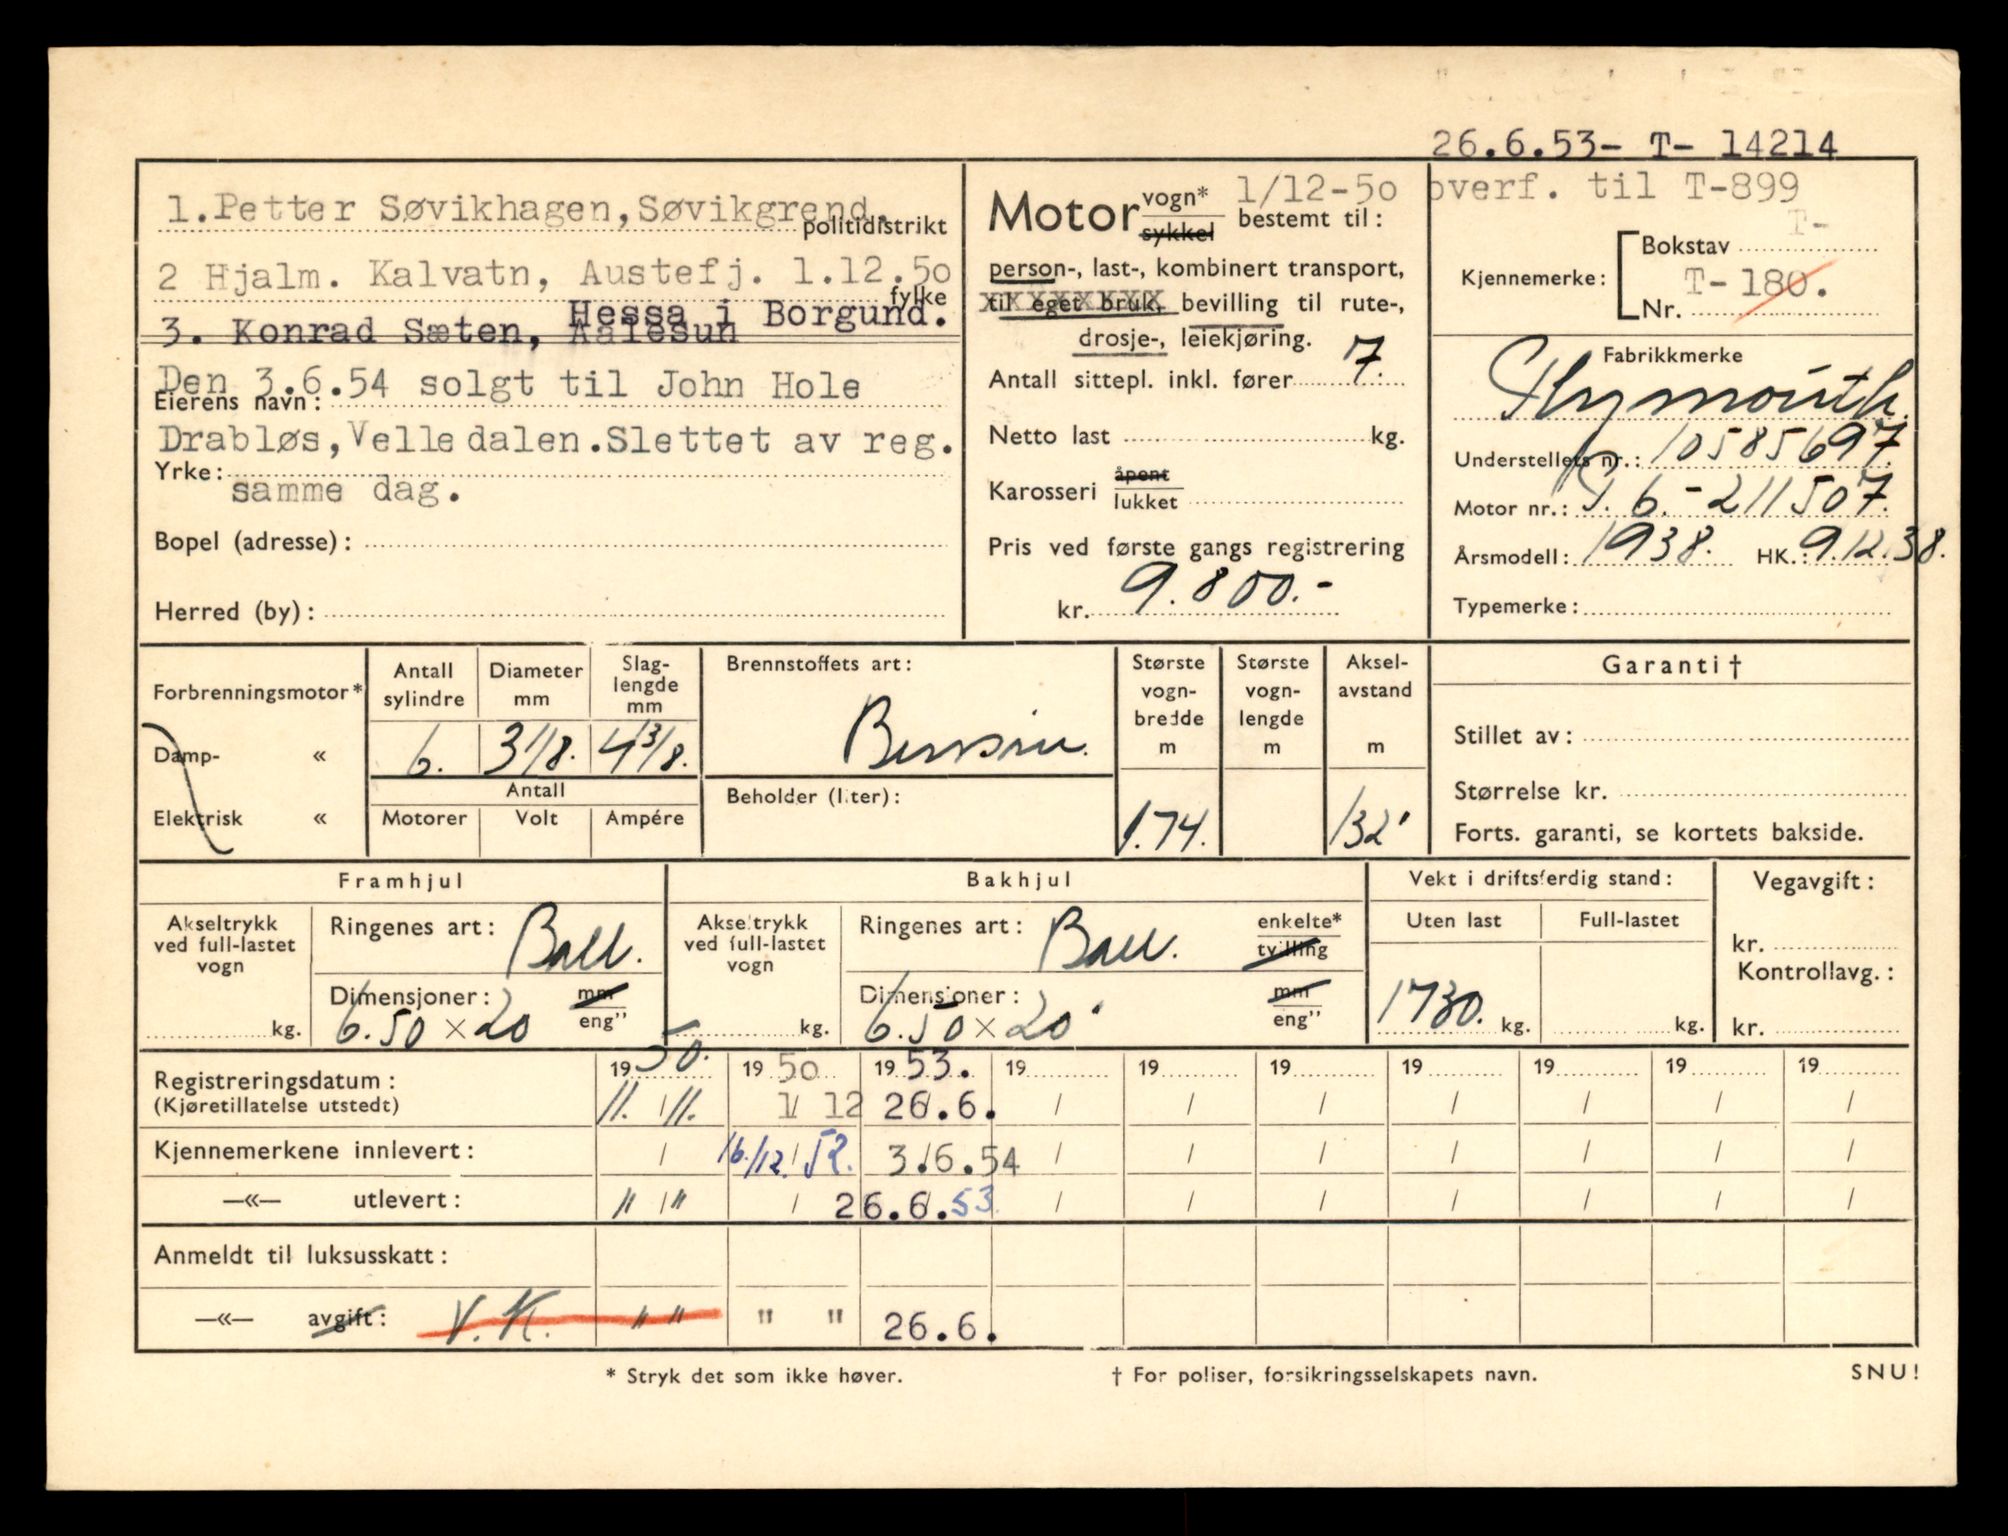 26.6.53- T- 14214
1.Petter Søvikhagen,Søvikgrend. politidistrikt
2 Hjalm. Kalvatn, Austefj. 1.12.50
fylke
Hessa i Borgund.
3. Konrad Sæten, Aalesun
Den 3.6.54 solgt til John Hole
Eierens navn:
Drabløs,Velledalen.Slettet av reg.
Yrke:
samme dag.
Bopel (adresse):
Herred (by):
Motor vogn* sykkel bestemt til:
1/12-50 overf. til T-899
person-, last-, kombinert transport,
til eget bruk, bevilling til rute-,
drosje-, leiekjøring.
Antall sittepl. inkl. fører 7.
Netto last kg.
Karosseri åpent lukket
Pris ved første gangs registrering
kr. 9.800.-
Kjennemerke:
Bokstav T-
Nr. T-180.
Fabrikkmerke
Plymouth.
Understellets nr.: 10585697
Motor nr.: P. 6.-211507.
Årsmodell: 1938. HK.: 9.12.38.
Typemerke:
Forbrenningsmotor*
Damp- «
Elektrisk «
Antall sylindre
6.
Diameter mm
3 1/8.
Slag-lengde mm
4 3/8.
Antall
Motorer Volt Ampére
Brennstoffets art:
Bensin.
Beholder (liter):
Største vogn-bredde m
1.74.
Største vogn-lengde m
Aksel-avstand m
132'
Garanti †
Stillet av:
Størrelse kr.
Forts. garanti, se kortets bakside.
Framhjul
Akseltrykk ved full-lastet vogn
kg.
Ringenes art: Ball.
Dimensjoner: mm eng"
6.50 × 20
Bakhjul
Akseltrykk ved full-lastet vogn
kg.
Ringenes art: Ball. enkelte* tvilling
Dimensjoner: mm eng"
6.50 × 20
Vekt i driftsferdig stand:
Uten last Full-lastet
1730. kg. kg.
Vegavgift:
kr.
Kontrollavg.:
kr.
Registreringsdatum: 19 50. 19 50 19 53. 19 19 19 19 19 19 19
(Kjøretillatelse utstedt) 11. / 11. 1/ 12 26.6. / / / / / / /
Kjennemerkene innlevert: / 16./12. / 52. 3.6.54 / / / / / / /
—«— utlevert: " / " / 26.6.53 / / / / / / /
Anmeldt til luksusskatt:
—«— avgift: V.K. " " " " 26.6.
* Stryk det som ikke høver.
† For poliser, forsikringsselskapets navn.
SNU!